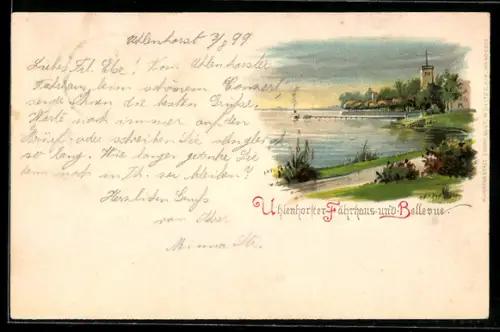 Uhlenhorst 3/8 99
Liebes Frl. Ebe! Vom Uhlenhorster
Fährhaus beim schönem Concert
sende Ihnen die besten Grüsse.
Warte noch immer auf den
Brief oder schreiben Sie
so lang. Wie lange gedenke Sie
denn noch in Th. zu bleiben?
Herzlichen Gruss
von Ihrer
Minna Str.
Uhlenhorster-Fährhaus-und-Bellevue.